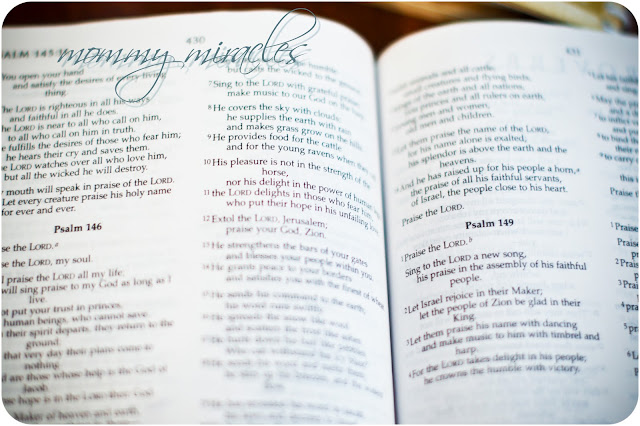 mommy miracles
PSALM 145
430
You open your hand
and satisfy the desires of every living
thing.
The LORD is righteous in all his ways
and faithful in all he does.
The LORD is near to all who call on him,
to all who call on him in truth.
He fulfills the desires of those who fear him;
he hears their cry and saves them.
The LORD watches over all who love him,
but all the wicked he will destroy.
mouth will speak in praise of the LORD.
Let every creature praise his holy name
for ever and ever.
Psalm 146
the LORD. a
the LORD, my soul.
praise the LORD all my life;
will sing praise to my God as long as I
live.
not put your trust in princes,
human beings, who cannot save.
their spirit departs, they return to the
ground;
that very day their plans come to
nothing.
are those whose help is the God of
Jacob,
hope is in the LORD their God
Maker of heaven and earth,
humble
but casts the wicked to the ground.
7 Sing to the LORD with grateful praise;
make music to our God on the harp.
8 He covers the sky with clouds;
he supplies the earth with rain
and makes grass grow on the hills.
9 He provides food for the cattle
and for the young ravens when they
10 His pleasure is not in the strength of the
horse,
nor his delight in the power of human
11 the LORD delights in those who fear him,
who put their hope in his unfailing love.
12 Extol the LORD, Jerusalem;
praise your God, Zion.
13 He strengthens the bars of your gates
and blesses your people within you.
14 He grants peace to your borders
and satisfies you with the finest of wheat.
15 He sends his command to the earth;
his word runs swiftly.
16 He spreads the snow like wool
and scatters the frost like ashes.
17 He hurls down his hail like pebbles.
431
wild animals and all cattle,
small creatures and flying birds,
kings of the earth and all nations,
princes and all rulers on earth,
young men and women,
old men and children.
Let them praise the name of the LORD,
for his name alone is exalted;
his splendor is above the earth and the
heavens.
And he has raised up for his people a horn, a
the praise of all his faithful servants,
of Israel, the people close to his heart.
Praise the LORD.
Psalm 149
1 Praise the LORD. b
Sing to the LORD a new song,
his praise in the assembly of his faithful
people.
2 Let Israel rejoice in their Maker;
let the people of Zion be glad in their
King.
3 Let them praise his name with dancing
and make music to him with timbrel and
harp.
4 For the LORD takes delight in his people;
he crowns the humble with victory.